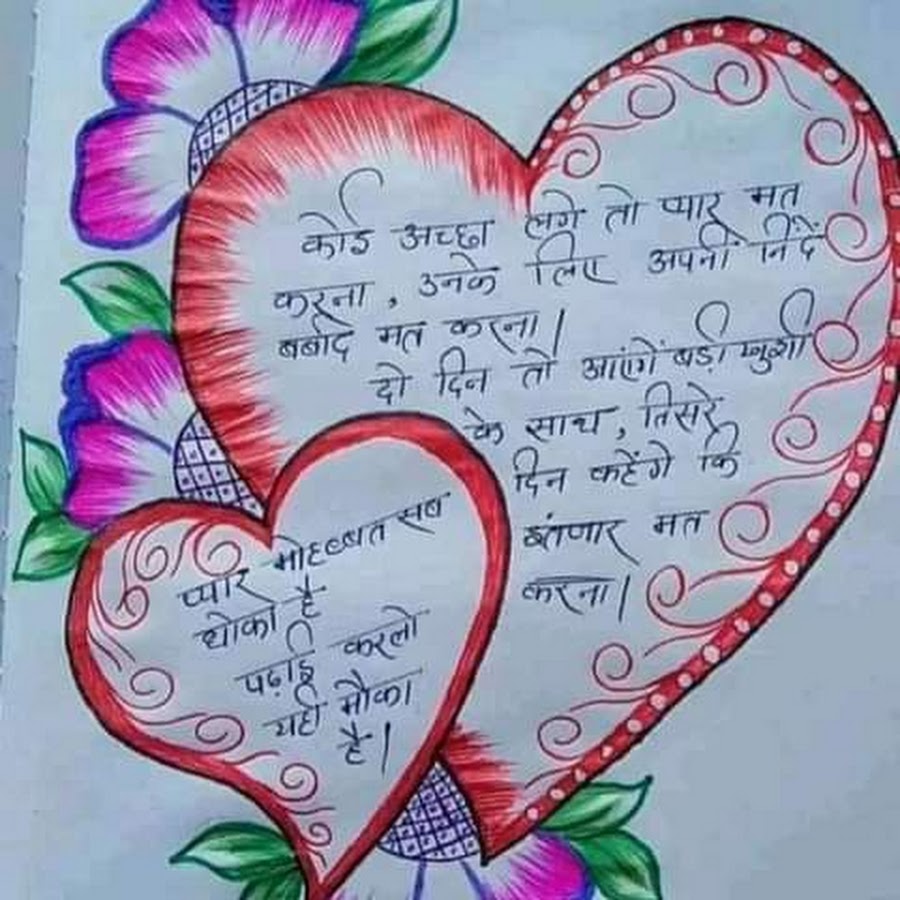 कोई अच्छा लगे तो प्यार मत
करना, उनके लिए अपनी निंदें
बर्बाद मत करना।
दो दिन तो आएंगें बड़ी खुशी
के साथ, तिसरे
दिन कहेंगे कि
इंतणार मत
करना।
प्यार मोहब्बत सब
धोका है
पढ़ाई करलो
यही मौका
है।